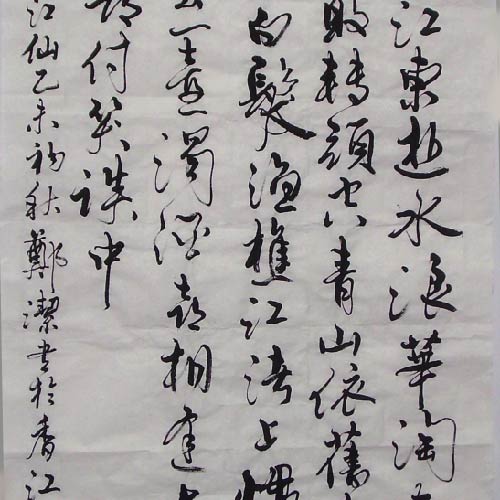 江東逝水浪華淘
敗轉頭空青山依舊
白髮漁樵江渚上慣
一壺濁酒喜相逢
都付笑談中
江仙乙未初秋鄭潔書於香江